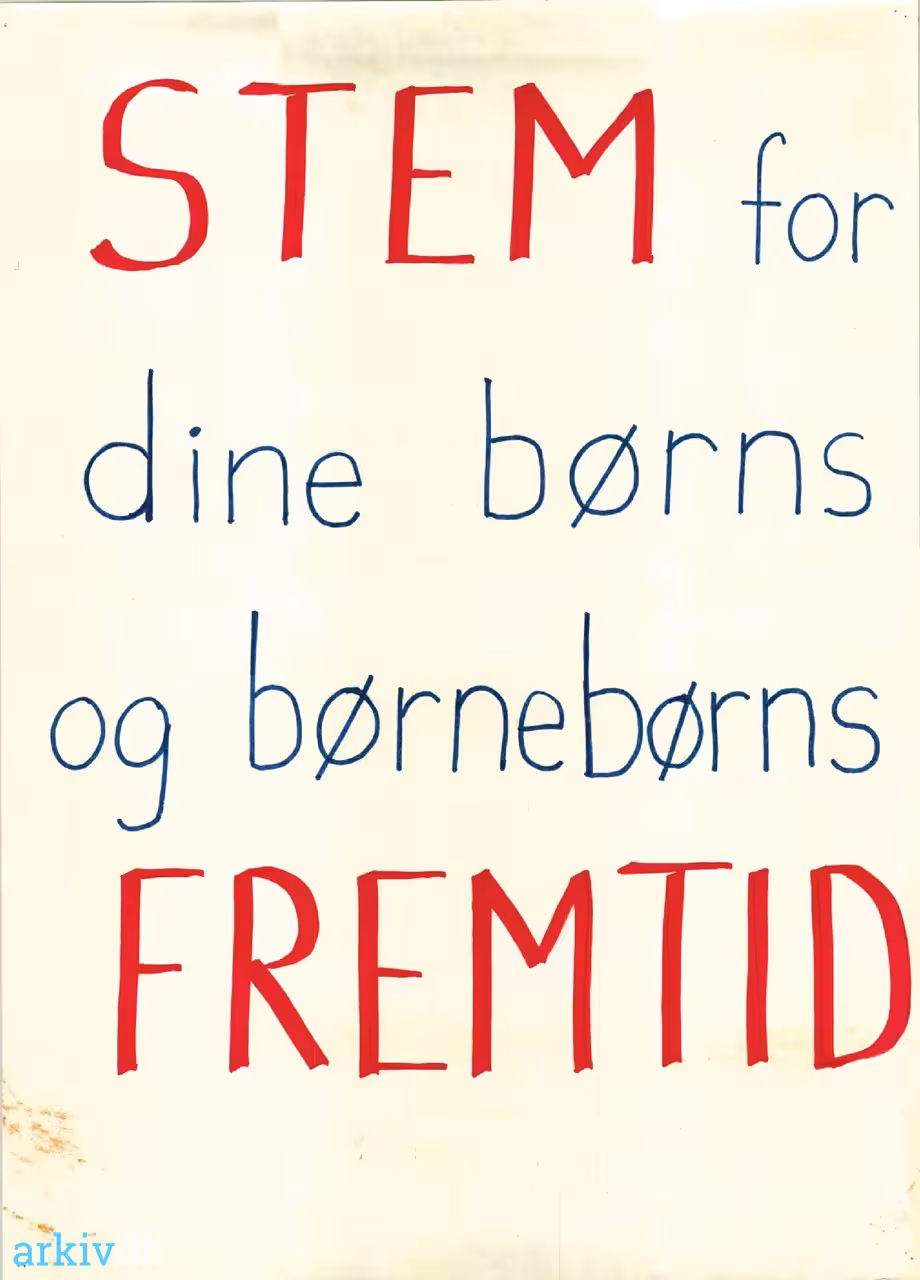 STEM for
dine børns
og børnebørns
FREMTID
arkiv